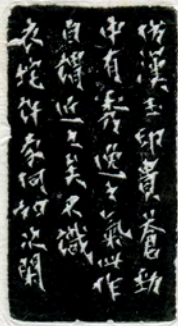 仿漢玉印貴蒼勁
中有秀逸之氣此作
自謂近之矣不識
方家許象何如次閑